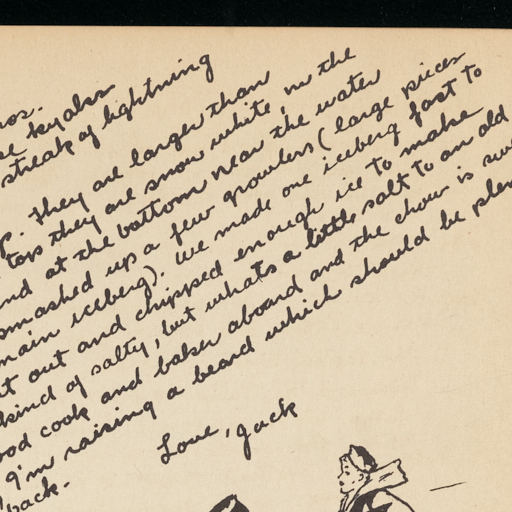 streak of lightning
They are larger than
tops they are snow white, in the
and at the bottom near the water
smashed up a few growlers (large pieces
main iceberg). We made one iceberg fast to
out and chipped enough ice to make
kind of salty, but whats a little salt to an old
cook and baker aboard and the chow is
I'm raising a beard which should be
back.
Love, Jack